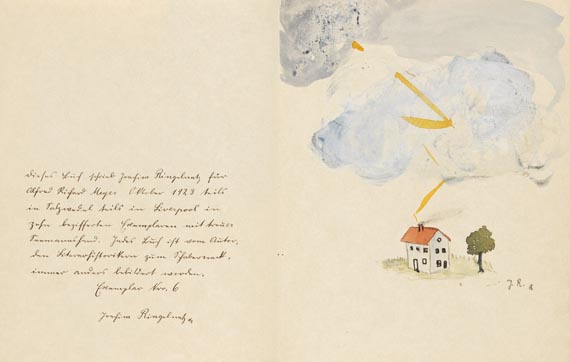 Dieses Buch schrieb Joachim Ringelnatz für
Alfred Richard Meyer Oktober 1923 teils
in Salzwedel teils in Liverpool in
zehn bezifferten Exemplaren mit treuer
Seemannshand. Jedes Buch ist vom Autor,
den Literarhistorikern zum Schabernack,
immer anders bebildert worden.
Exemplar Nro. 6
Joachim Ringelnatz
J. R.